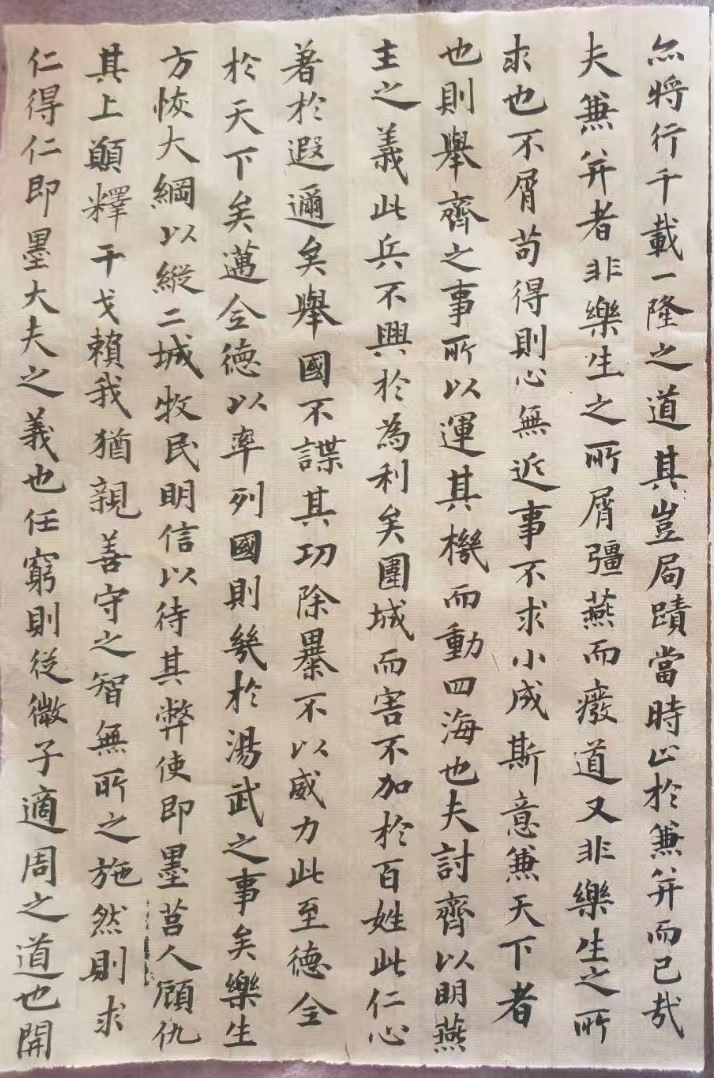 亦將行千載一隆之道其豈局蹟當時止於兼并而已哉
夫兼并者非樂生之所屑彊燕而癈道又非樂生之所
求也不屑苟得則心無近事不求小成斯意兼天下者
也則舉齊之事所以運其機而動四海也夫討齊以明燕
主之義此兵不興於為利矣圍城而害不加於百姓此仁心
著於遐邇矣舉國不謀其功除暴不以威力此至德全
於天下矣邁全德以率列國則幾於湯武之事矣樂生
方恢大綱以縱二城牧民明信以待其弊使即墨莒人顧仇
其上願釋干戈賴我猶親善守之智無所之施然則求
仁得仁即墨大夫之義也任窮則從微子適周之道也開